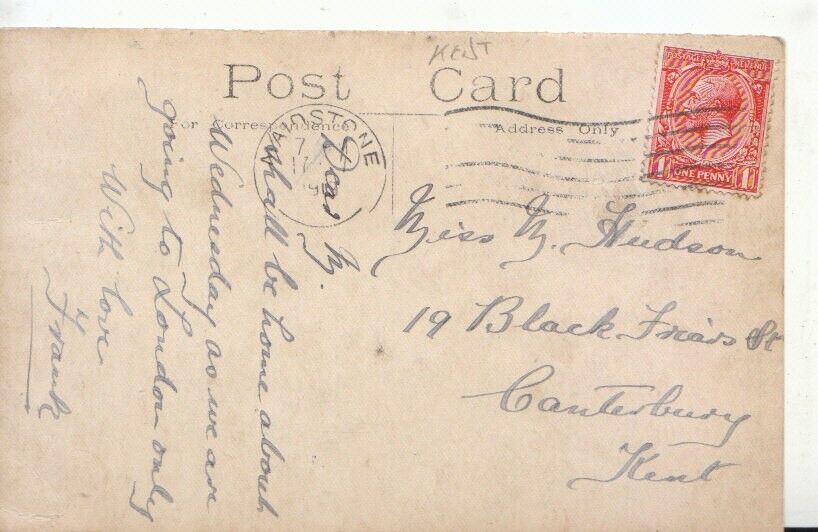 KENT
Post Card
For Correspondence
Address Only
MAIDSTONE
POSTAGE REVENUE
ONE PENNY
1D 1D
Dear M.
shall be home about
Wednesday as we are
going to London only
With love
Frank
Miss M. Hudson
19 Black Friars St
Canterbury
Kent